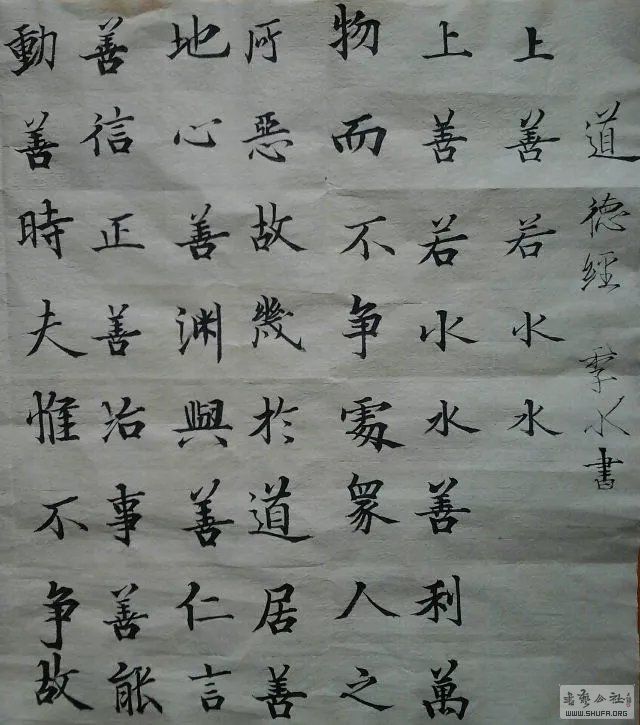 道德經 水書
上善若水水
上善若水水善利萬
物而不争處眾人之
所惡故幾於道居善
地心善渊與善仁言
善信正善治事善能
動善時夫惟不争故
書藝公社
WWW.SHUFA.ORG